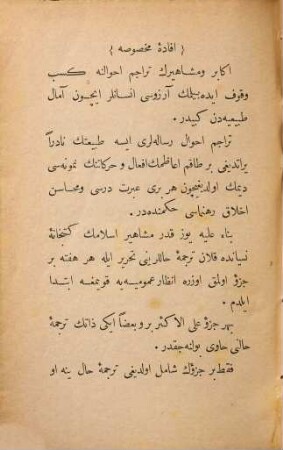 { افادۀ مخصوصه }
اكابر ومشاهيرك تراجم احوالنه كسب
وقوف ايده‌بيلمك آرزوسى انسانلر ايچون آمال
طبيعيه‌دن كبيدر .
تراجم احوال رساله‌لرى ايسه طبيعتك نادراً
يراتديغى بر طاقم اعاظمك افعال و حركاتنك نمونه‌سى
ديمك اولديغيچون هر برى عبرت درسى ومحاسن
اخلاق رهنماسى حكمنده‌در .
بناءً عليه يوز قدر مشاهير اسلامك كتبخانۀ
نسيانده قلان ترجمۀ حاللرينى تحرير ايله هر هفته بر
جزؤ اولمق اوزره انظار عموميه‌يه قويمغه ابتدا
ايلدم .
بهر جزؤ على الاكثر بر وبعضاً ايكى ذاتك ترجمۀ
حالنى حاوى بولنه‌جقدر .
فقط بر جزؤك شامل اولديغى ترجمۀ حال ينه او